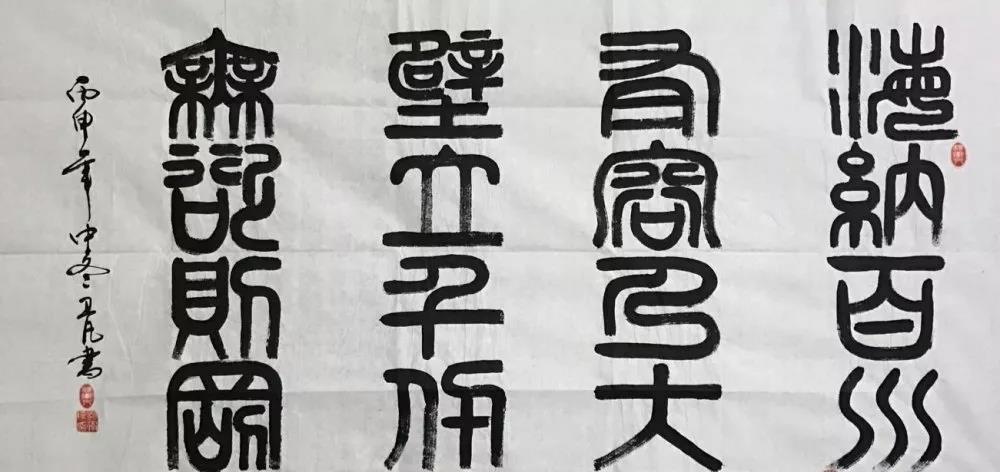 海納百川
有容乃大
壁立千仞
無欲則剛
丙申年中冬 書